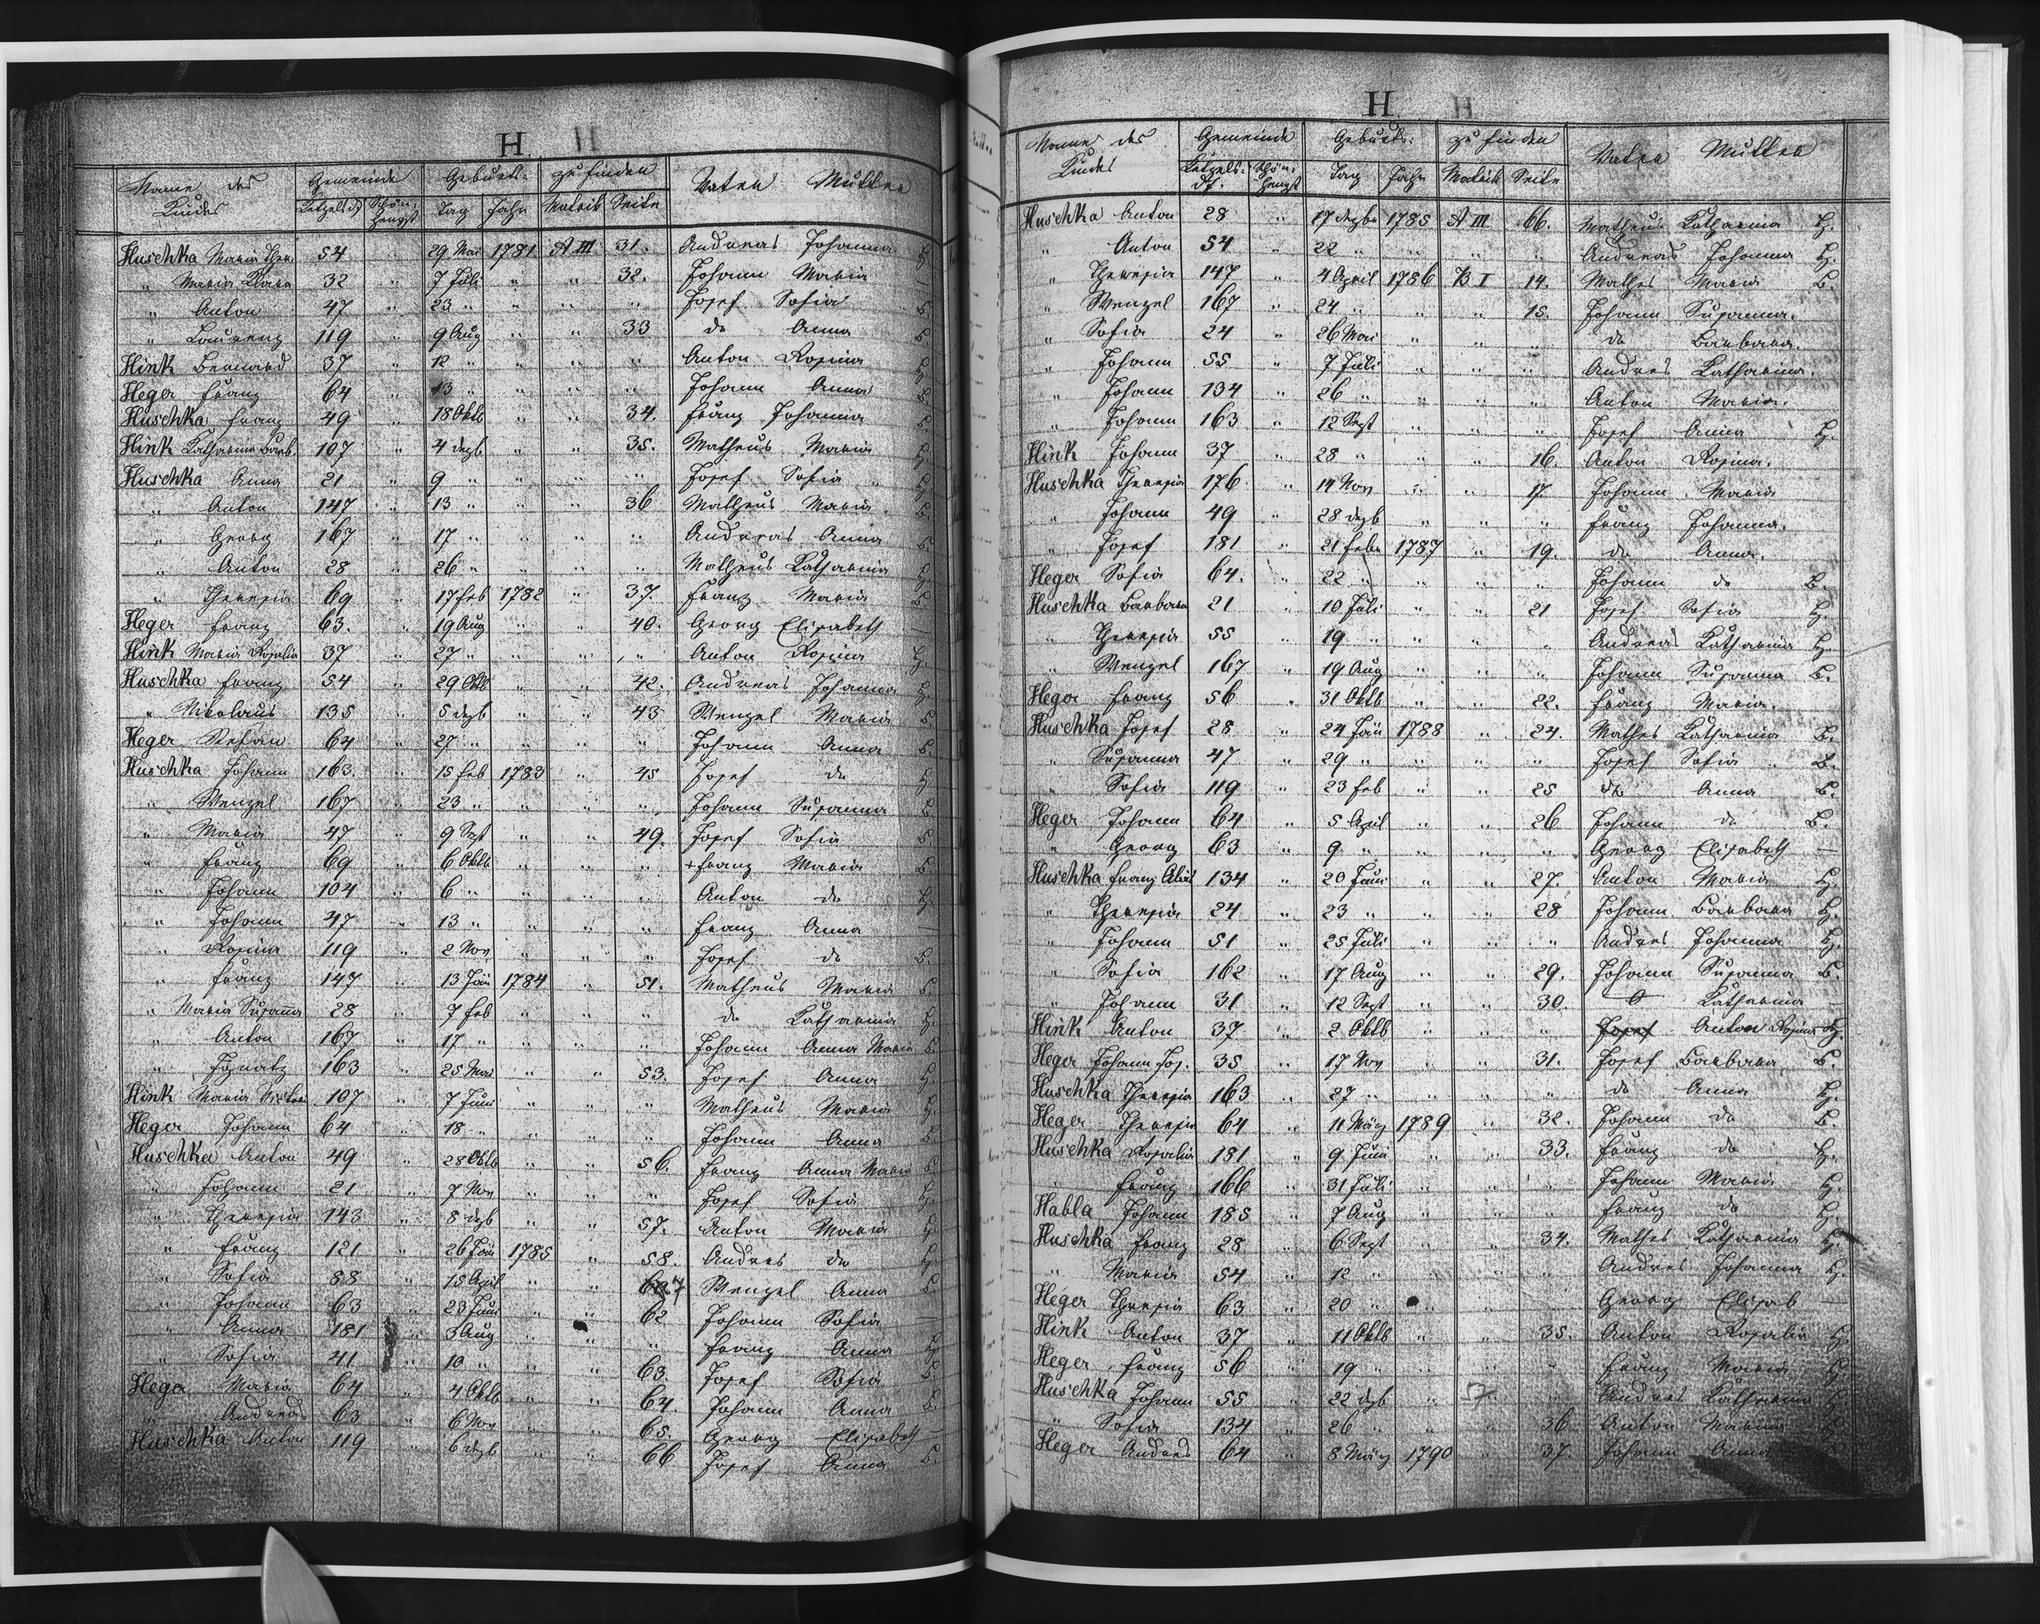 H
Name des Kindes Gemeinde Geburts- zu finden Vater Mutter
Ketzelsdf Schönhengst Tag Jahr Matrik Seite
Huschka Maria Ther. 54 " 29 Mai 1781 A III 31. Andreas Johanna
" Maria Klara 32 " 7 Juli " " 32. Johann Maria —
" Anton 47 " 23 " " " " Josef Sofia
" Laurenz 119 " 9 Aug " " 33 do Anna
Hink Bernard 37 " 12 " " " " Anton Rosina
Heger Franz 64 " 13 " " " " Johann Anna
Huschka Franz 49 " 18 Oktb " " 34. Franz Johanna
Hink Katharina Barb. 107 " 4 dezb " " 35. Matheus Maria
Huschka Anna 21 " 9 " " " " Josef Sofia
" Anton 147 " 13 " " " 36 Matheus Maria
" Georg 167 " 17 " " " " Andreas Anna
" Anton 28 " 26 " " " " Matheus Katharina
" Theresia 69 " 17 feb 1782 " 37. Franz Maria
Heger Franz 63. " 19 Aug " " 40. Georg Elisabeth —
Hink Maria Rosalia 37 " 27 " " " " Anton Rosina
Huschka Franz 54 " 29 Oktb " " 42. Andreas Johanna
" Nikolaus 135 " 5 dezb " " 43 Wenzel Maria
Heger Stefan 64 " 27 " " " " Johann Anna
Huschka Johann 163. " 15 feb 1783 " 45 Josef do
" Wenzel 167 " 23 " " " " Johann Susanna
" Maria 47 " 9 Spt " " 49. Josef Sofia
" Franz 69 " 6 Oktb " " " + Franz Maria
" Johann 104 " 6 " " " " Anton do
" Johann 47 " 13 " " " " Franz Anna —
" Rosina 119 " 2 Nov " " " Josef do
" Franz 147 " 13 Jän 1784 " 51. Matheus Maria
" Maria Susanna 28 " 7 feb " " " do Katharina
" Anton 167 " 17 " " " " Johann Anna Maria
" Ignatz 163 " 25 Mai " " 53. Josef Anna
Hink Maria 107 " 7 Juni " " " Matheus Maria
Heger Johann 64 " 18 " " " " Johann Anna
Huschka Anton 49 " 28 Oktb " " 56. Franz Anna Maria
" Johann 21 " 7 Nov " " " Josef Sofia
" Theresia 143 " 8 dezb " " 57. Anton Maria
" Franz 121 " 26 Jän 1785 " 58. Andres do
" Sofia 88 " 15 April " " Wenzel Anna
" Johann 63 " 23 Juni " " 62 Johann Sofia —
" Anna 181 " 3 Aug " " " Franz Anna
" Sofia 41 " 10 " " " 63. Josef Sofia
Heger Maria 64 " 4 Oktb " " 64. Johann Anna
" Andreas 63 " 6 Nov " " 65. Georg Elisabeth —
Huschka Anton 119 " 6 dezb " " 66 Josef Anna
H
Name des Kindes Gemeinde Geburts: zu finden Vater Mutter
Ketzelsdf. Schönhengst Tag Jahr Matrik Seite
Huschka Anton 28 " 17 dezbr 1785 A III 66. Matheus Katharina H.
" Anton 54 " 22 " " " " Andreas Johanna H.
" Theresia 147 " 4 April 1786 B I 14. Mathes Maria B.
" Wenzel 167 " 24 " " " 15. Johann Susanna.
" Sofia 24 " 26 Mai " " " do Barbara.
" Johann 55 " 7 Juli " " " Andres Katharina.
" Johann 134 " 26 " " " " Anton Maria.
" Johann 163 " 12 Sept " " " Josef Anna H.
Hink Johann 37 " 28 " " " 16. Anton Rosina.
Huschka Theresia 176 " 14 Nov " " 17. Johann Maria
" Johann 49 " 28 dezb " " " Franz Johanna.
" Josef 181 " 21 Febr 1787 " 19. do Anna.
Heger Sofia 64. " 22 " " " " Johann do B.
Huschka Barbara 21 " 10 Juli " " 21 Josef Sofia H.
" Theresia 55 " 19 " " " " Andreas Katharina H.
" Wenzel 167 " 19 Aug " " " Johann Susanna B.
Heger Franz 56 " 31 Oktb " " 22. Franz Maria.
Huschka Josef 28 " 24 Jän 1788 " 24. Mathes Katharina B.
" Susanna 47 " 29 " " " " Josef Sofia B.
" Sofia 119 " 23 feb " " 25 do Anna B.
Heger Johann 64 " 5 April " " 26 Johann do B.
" Georg 63 " 9 " " " " Georg Elisabeth —
Huschka Franz Alois 134 " 20 Juni " " 27. Anton Maria H.
" Theresia 24 " 23 " " " 28 Johann Barbara H.
" Johann 51 " 25 Juli " " " Andres Johanna H.
" Sofia 162 " 17 Aug " " 29. Johann Susanna B.
" Johann 31 " 12 Sept " " 30. 0 Katharina —
Hink Anton 37 " 2 Oktb " " " Josef Anton Rosina H.
Heger Johann Jos. 35 " 17 Nov " " 31. Josef Barbara B.
Huschka Theresia 163 " 27 " " " " do Anna H.
Heger Theresia 64 " 11 März 1789 " 32. Johann do B.
Huschka Rosalia 181 " 9 Juni " " 33. Franz do H.
" Franz 166 " 31 Juli " " " Johann Maria H.
Habla Johann 185 " 7 Aug " " " Franz do H.
Huschka Franz 28 " 6 Sept " " 34. Mathes Katharina H.
" Maria 54 " 12 " " " " Andres Johanna H.
Heger Theresia 63 " 20 " " " " Georg Elisab —
Hink Anton 37 " 11 Oktb " " 35. Anton Rosalia H.
Heger Franz 56 " 19 " " " " Franz Maria
Huschka Johann 55 " 22 dezb " " " Andres Katharina
" Sofia 134 " 26 " " " 36 Anton Maria
Heger Andreas 64 " 8 März 1790 " 37. Johann Anna